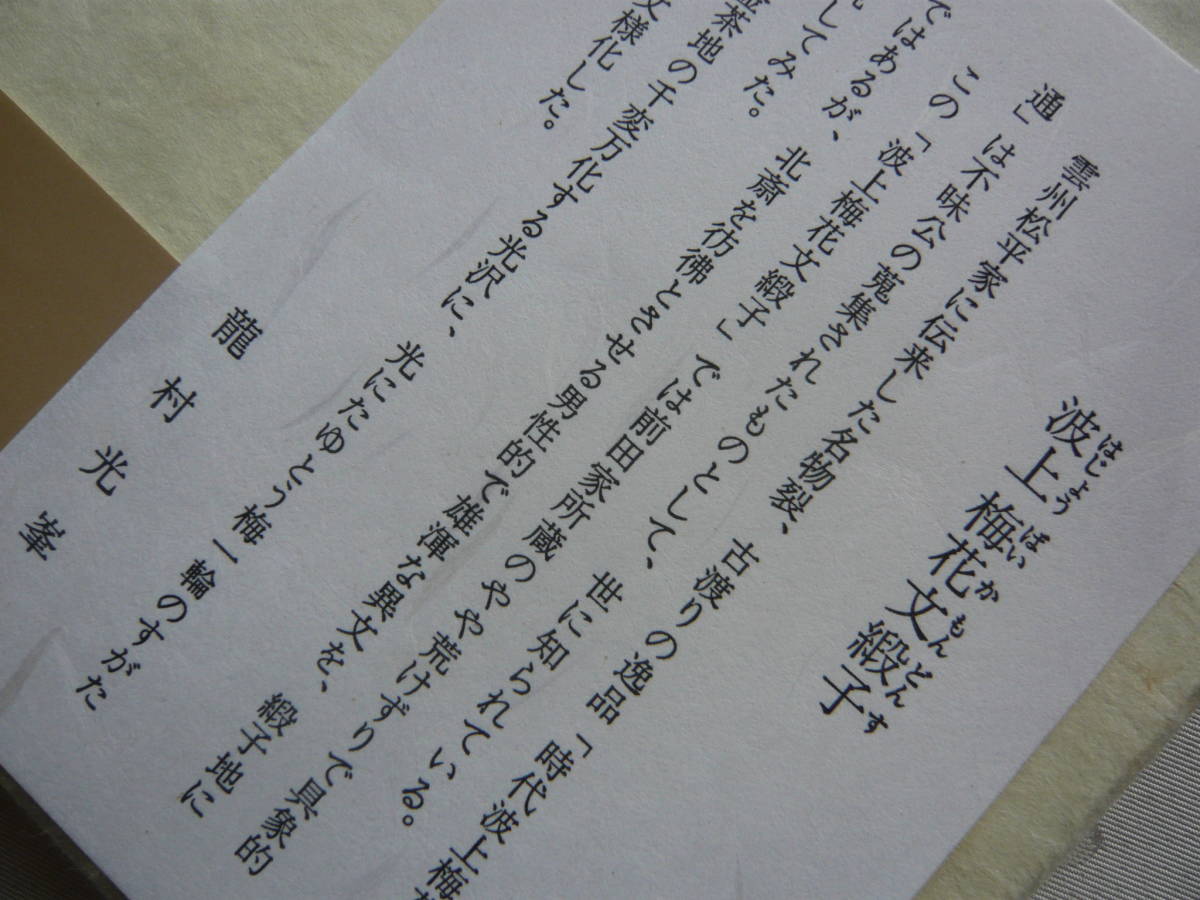 はじょうばいかもんどんす
波上梅花文緞子
雲州松平家に伝来した名物裂、古渡りの逸品「時代波上梅
通」は不昧公の蒐集されたものとして、世に知られている。
この「波上梅花文緞子」では前田家所蔵のやや荒けずりで具象的
ではあるが、北斎を彷彿とさせる男性的で雄渾な異文を、緞子地に
してみた。
茶地の千変万化する光沢に、光にたゆとう梅一輪のすがた
文様化した。
龍村光峯